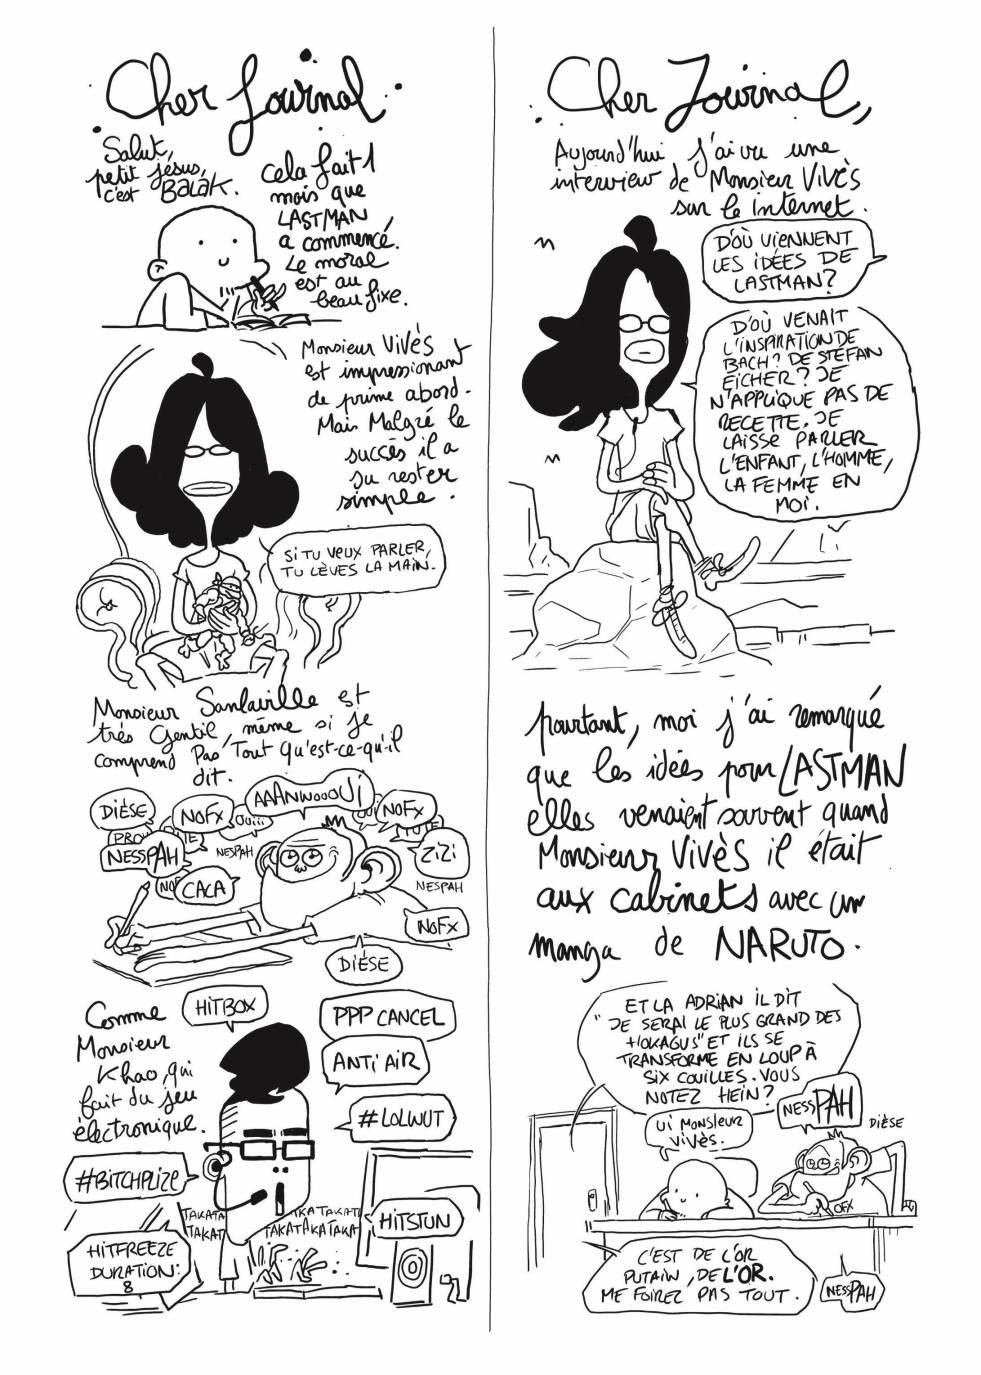 Cher Journal
Salut,
petit Jésus,
c'est BALAK.
Cela fait 1
mois que
LASTMAN
a commencé.
Le moral
est au
beau fixe.
Monsieur Vivès
est impressionnant
de prime abord.
Mais Malgré le
succès il a
su rester
simple.
SI TU VEUX PARLER,
TU LÈVES LA MAIN.
Monsieur Sanlaville est
très Gentil, même si je
comprend Pas Tout Qu'est-ce-qu'il
dit.
DIÈSE
NOFX
OUiii
AAANWOOOUi
NOFX
NESSPAH
NESPAH
ZIZI
NESPAH
CACA
NOFX
DIÈSE
Comme
Monsieur
Khao, qui
fait du jeu
électronique.
HITBOX
PPP CANCEL
ANTI AIR
#LOLWUT
#BITCHPLIZE
TAKATA
TAKAT
TAKATAKATAKA
HITSTUN
HITFREEZE
DURATION:
8
Cher Journal,
Aujourd'hui j'ai vu une
interview de Monsieur Vivès
sur le internet.
D'OÙ VIENNENT
LES IDÉES DE
LASTMAN?
D'OÙ VENAIT
L'INSPIRATION DE
BACH? DE STEFAN
EICHER? JE
N'APPLIQUE PAS DE
RECETTE. JE
LAISSE PARLER
L'ENFANT, L'HOMME,
LA FEMME EN
MOI.
pourtant, moi j'ai remarqué
que les idées pour LASTMAN
elles venaient souvent quand
Monsieur Vivès il était
aux cabinets avec un
manga de NARUTO.
ET LA ADRIAN IL DIT
"JE SERAI LE PLUS GRAND DES
HOKAGUS" ET ILS SE
TRANSFORME EN LOUP À
SIX COUILLES. VOUS
NOTEZ HEIN?
Ui MONSIEUR
VIVÈS.
NESSPAH
DIÈSE
OFX
C'EST DE L'OR
PUTAIN, DE L'OR.
ME FOIREZ PAS TOUT.
NESSPAH